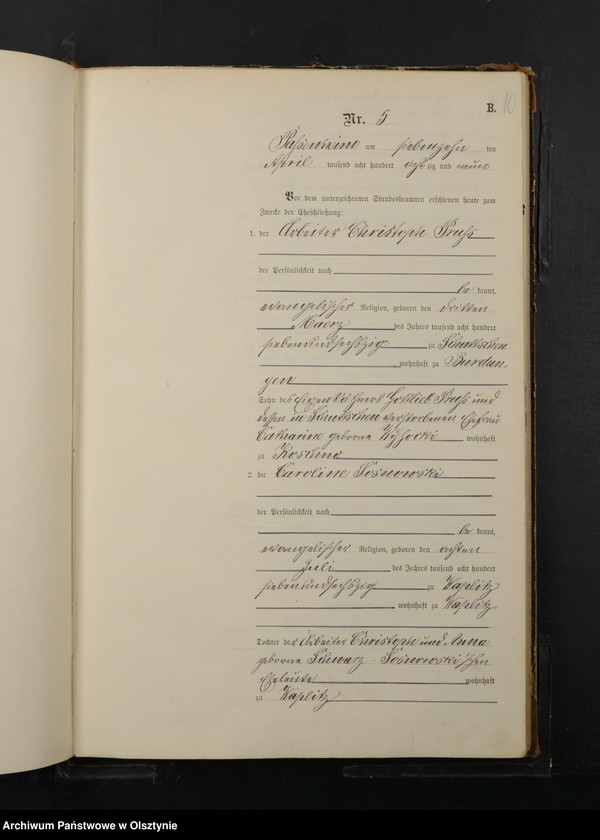 B. 10
Nr. 5
Passenheim am siebenzehn ten
April tausend acht hundert achtzig und neun
Vor dem unterzeichneten Standesbeamten erschienen heute zum
Zwecke der Eheschließung:
1. der Arbeiter Christoph Pruss
der Persönlichkeit nach
be kannt,
evangelischer Religion, geboren den dritten
Maerz des Jahres tausend acht hundert
siebenundsechszig zu
, wohnhaft zu Burdun-
gen
Sohn des Eigenkäthners Gottlieb Pruss und
dessen in verstorbenen Ehefrau
Catharine geborne Wyssocki wohnhaft
zu Koslino
2. die Caroline Sosnowski
der Persönlichkeit nach
be kannt,
evangelischer Religion, geboren den achten
Juli des Jahres tausend acht hundert
siebenundsechszig zu Waplitz
, wohnhaft zu Waplitz
Tochter der Arbeiter Christoph und Anna
geborne Schwarz - Sosnowski'schen
Eheleute wohnhaft
zu Waplitz
Archiwum Państwowe w Olsztynie